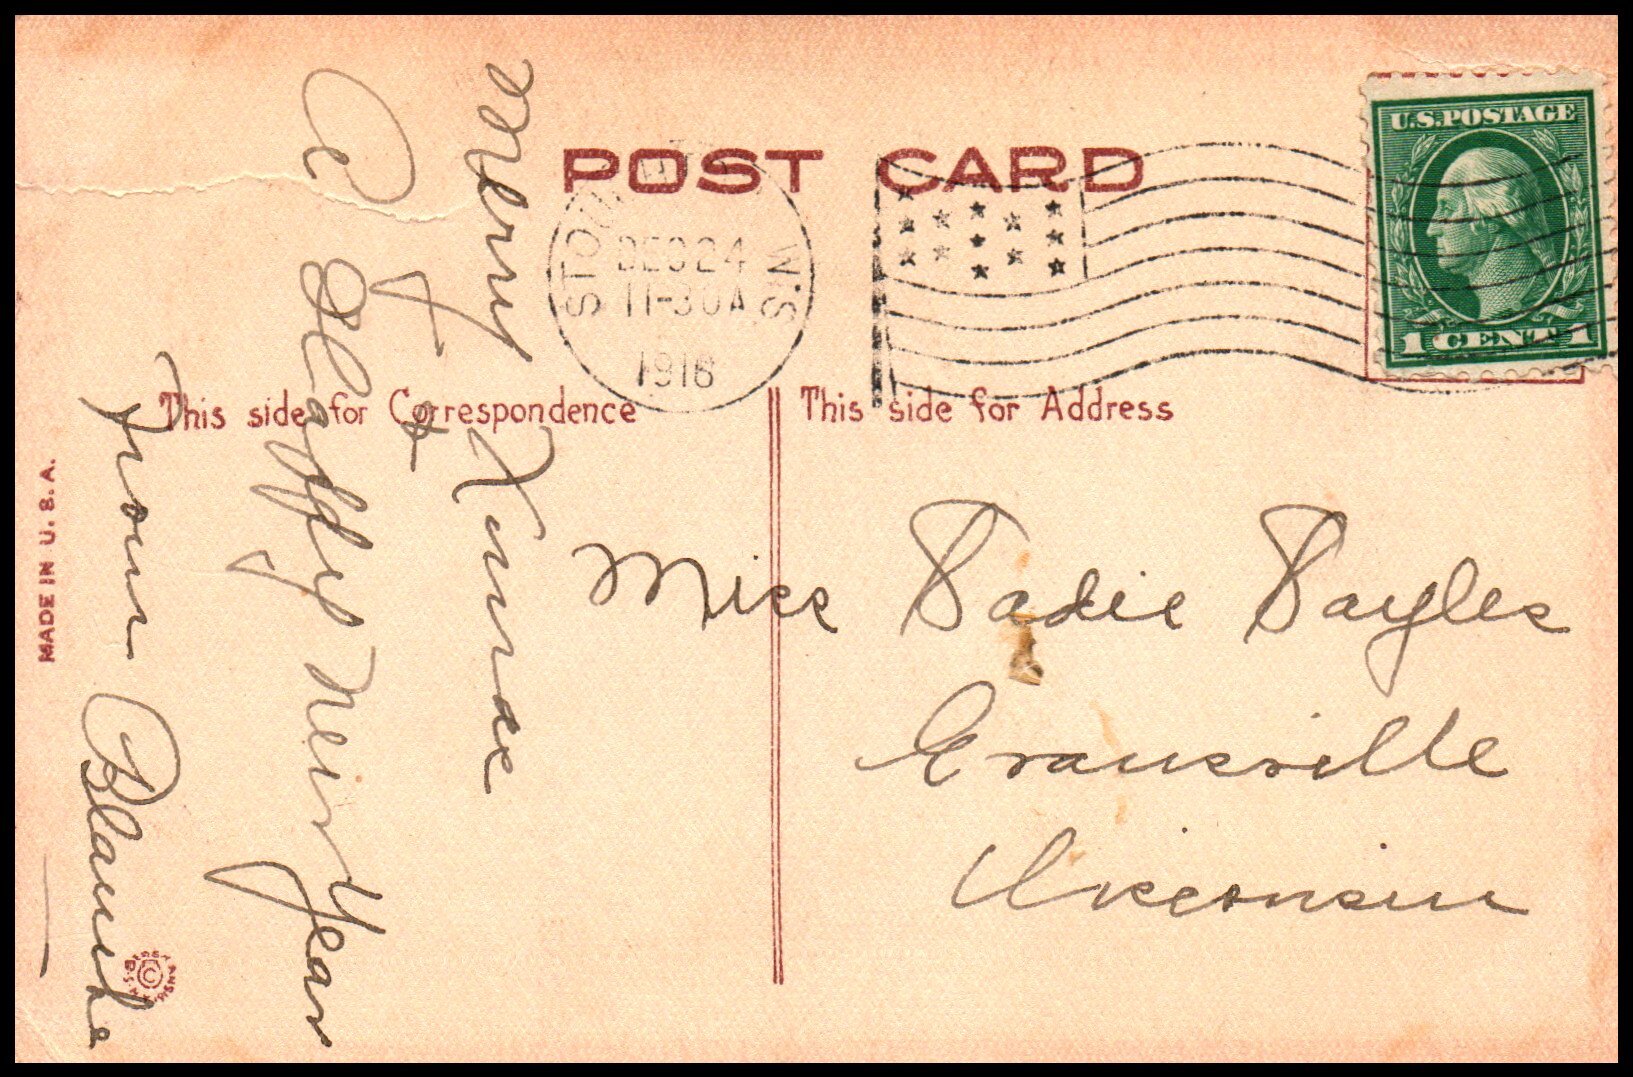 POST CARD
U.S.POSTAGE
1 CENT 1
DEC 24
11-30A
1916
WIS.
This side for Correspondence
This side for Address
Merry Xmas
&
A Happy New Year
From Blanche
Miss Sadie Bayles
Evansville
Wisconsin
MADE IN U.S.A.
©